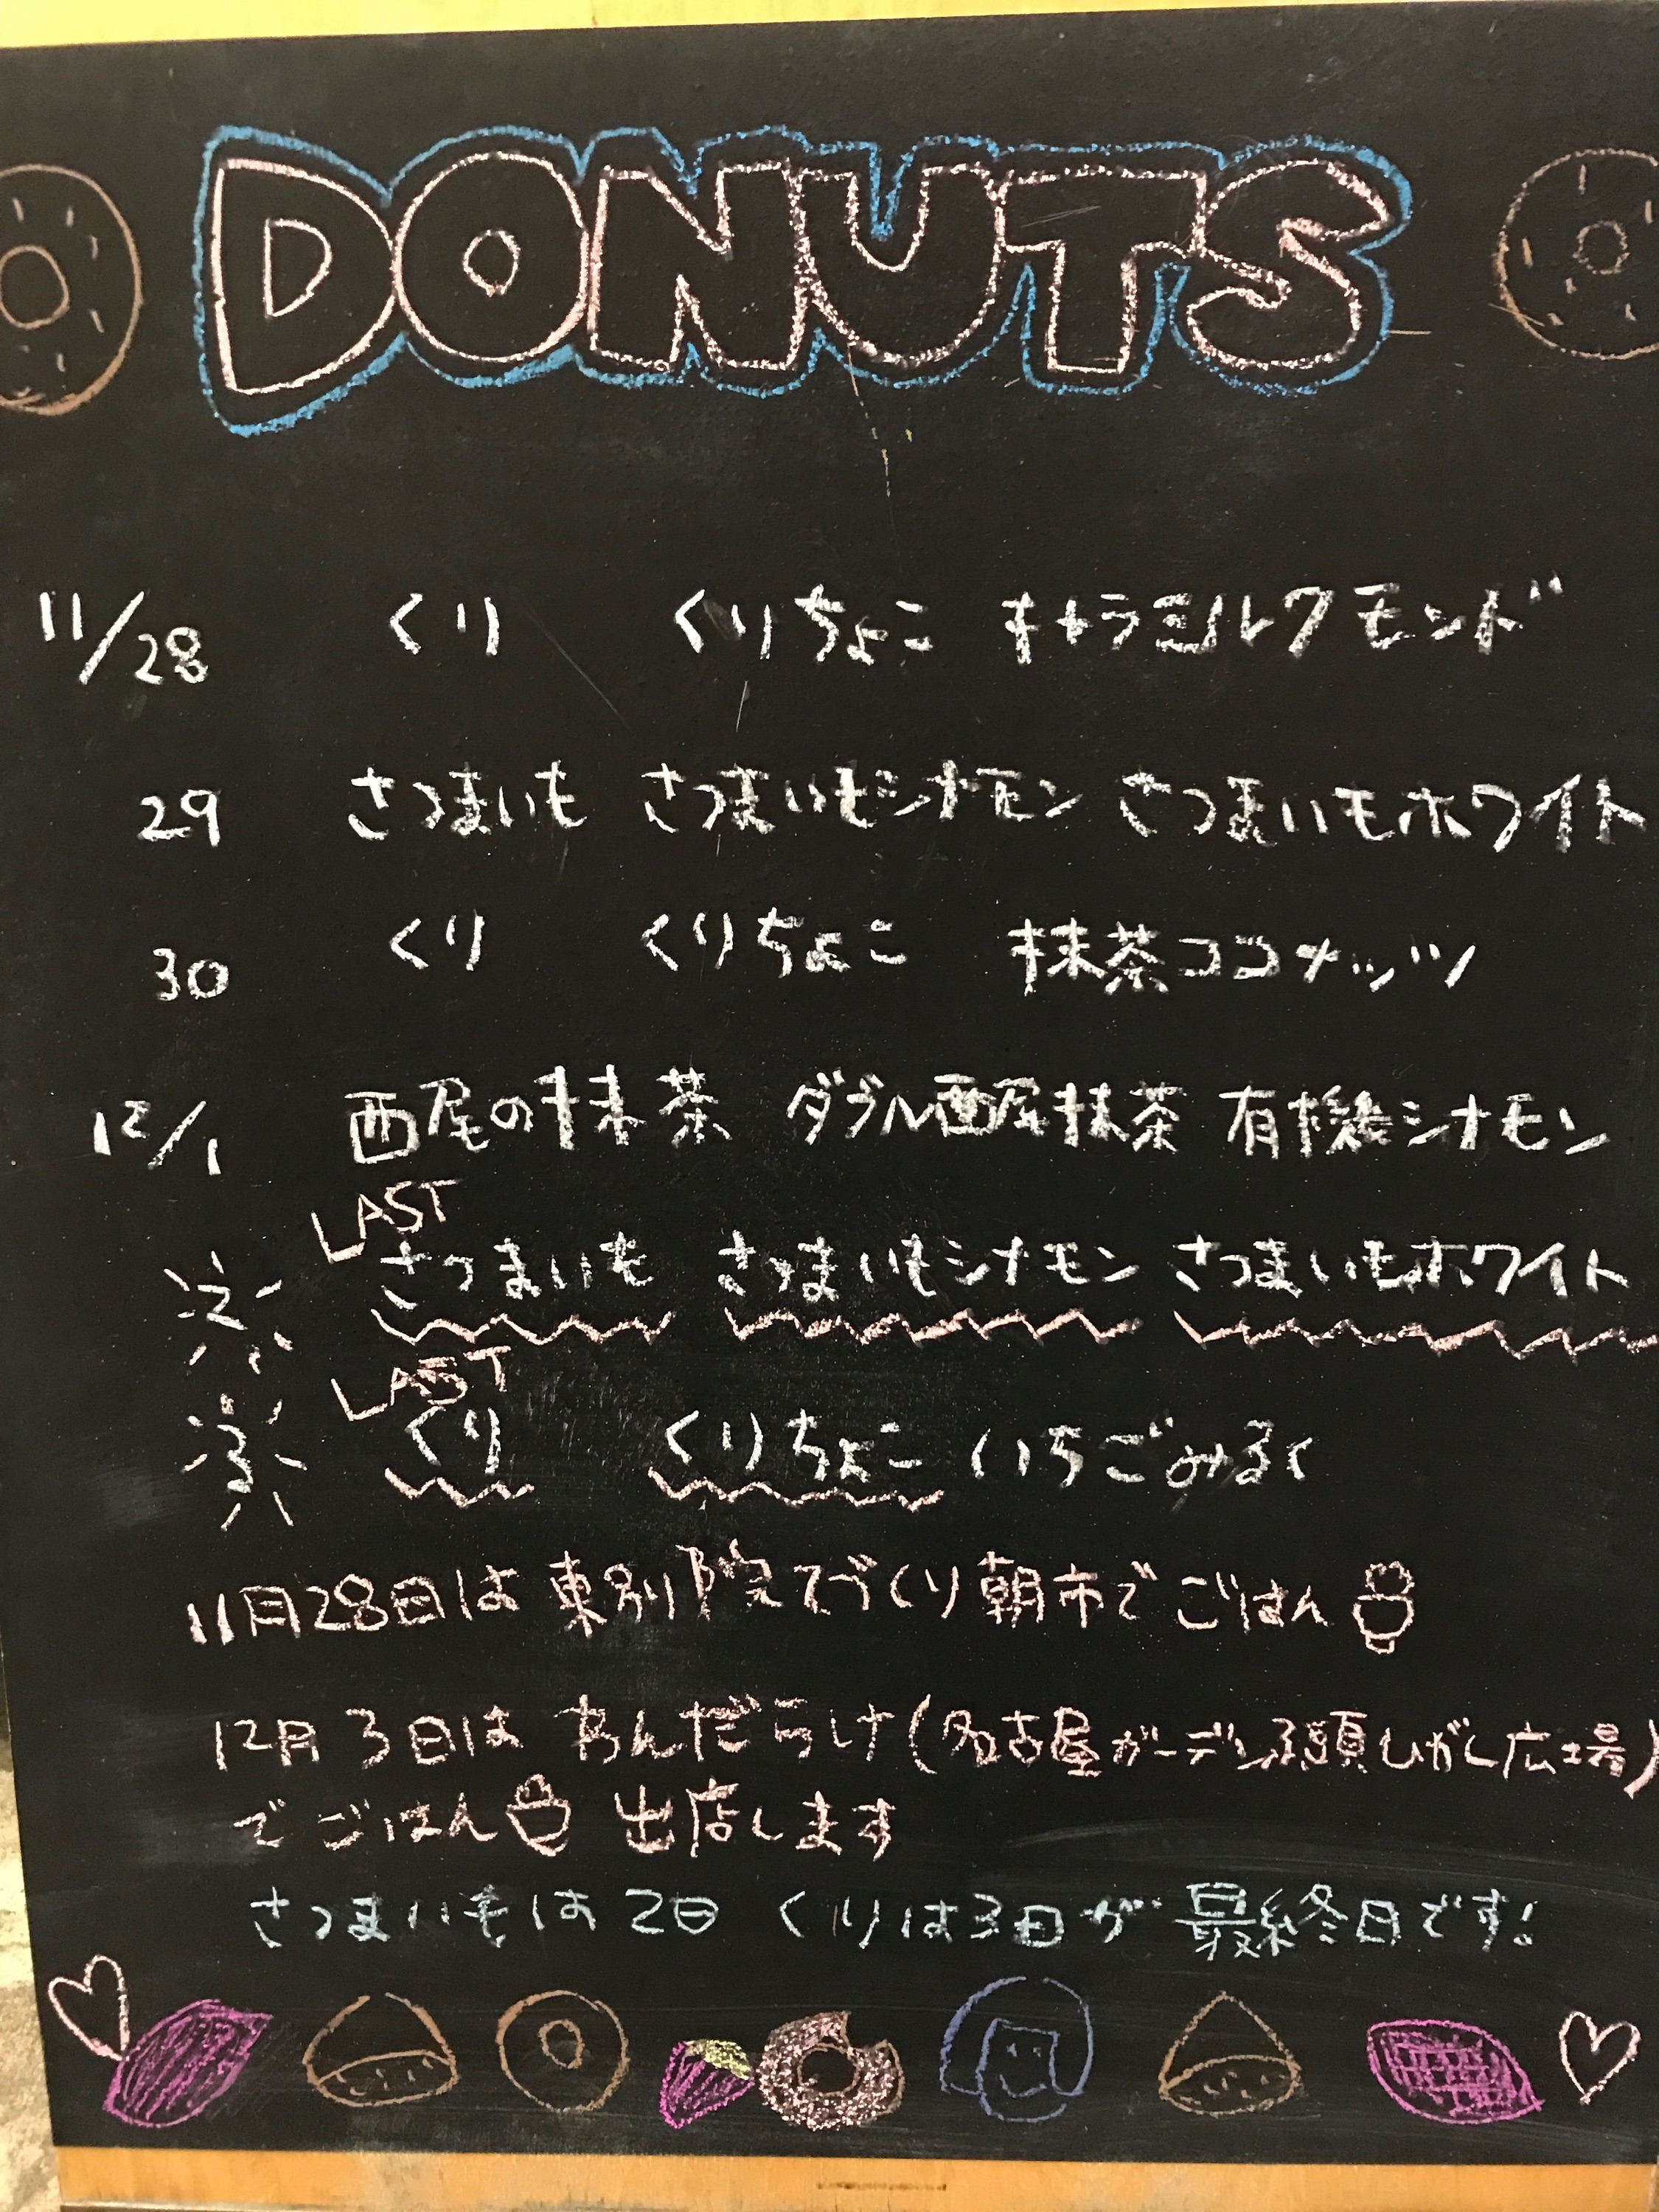 DONUTS
11/28 くり くりちょこ キャラミルクモンド
29 さつまいも さつまいもシナモン さつまいもホワイト
30 くり くりちょこ 抹茶ココナッツ
12/1 西尾の抹茶 ダブル西尾抹茶 有機シナモン
LAST
2 さつまいも さつまいもシナモン さつまいもホワイト
LAST
3 くり くりちょこ いちごみるく
11月28日は 東別院てづくり朝市で ごはん
12月3日は あんだらけ(名古屋ガーデン ひがし広場)
で ごはん 出店します
さつまいもは2日 くりは3日が 最終日です!